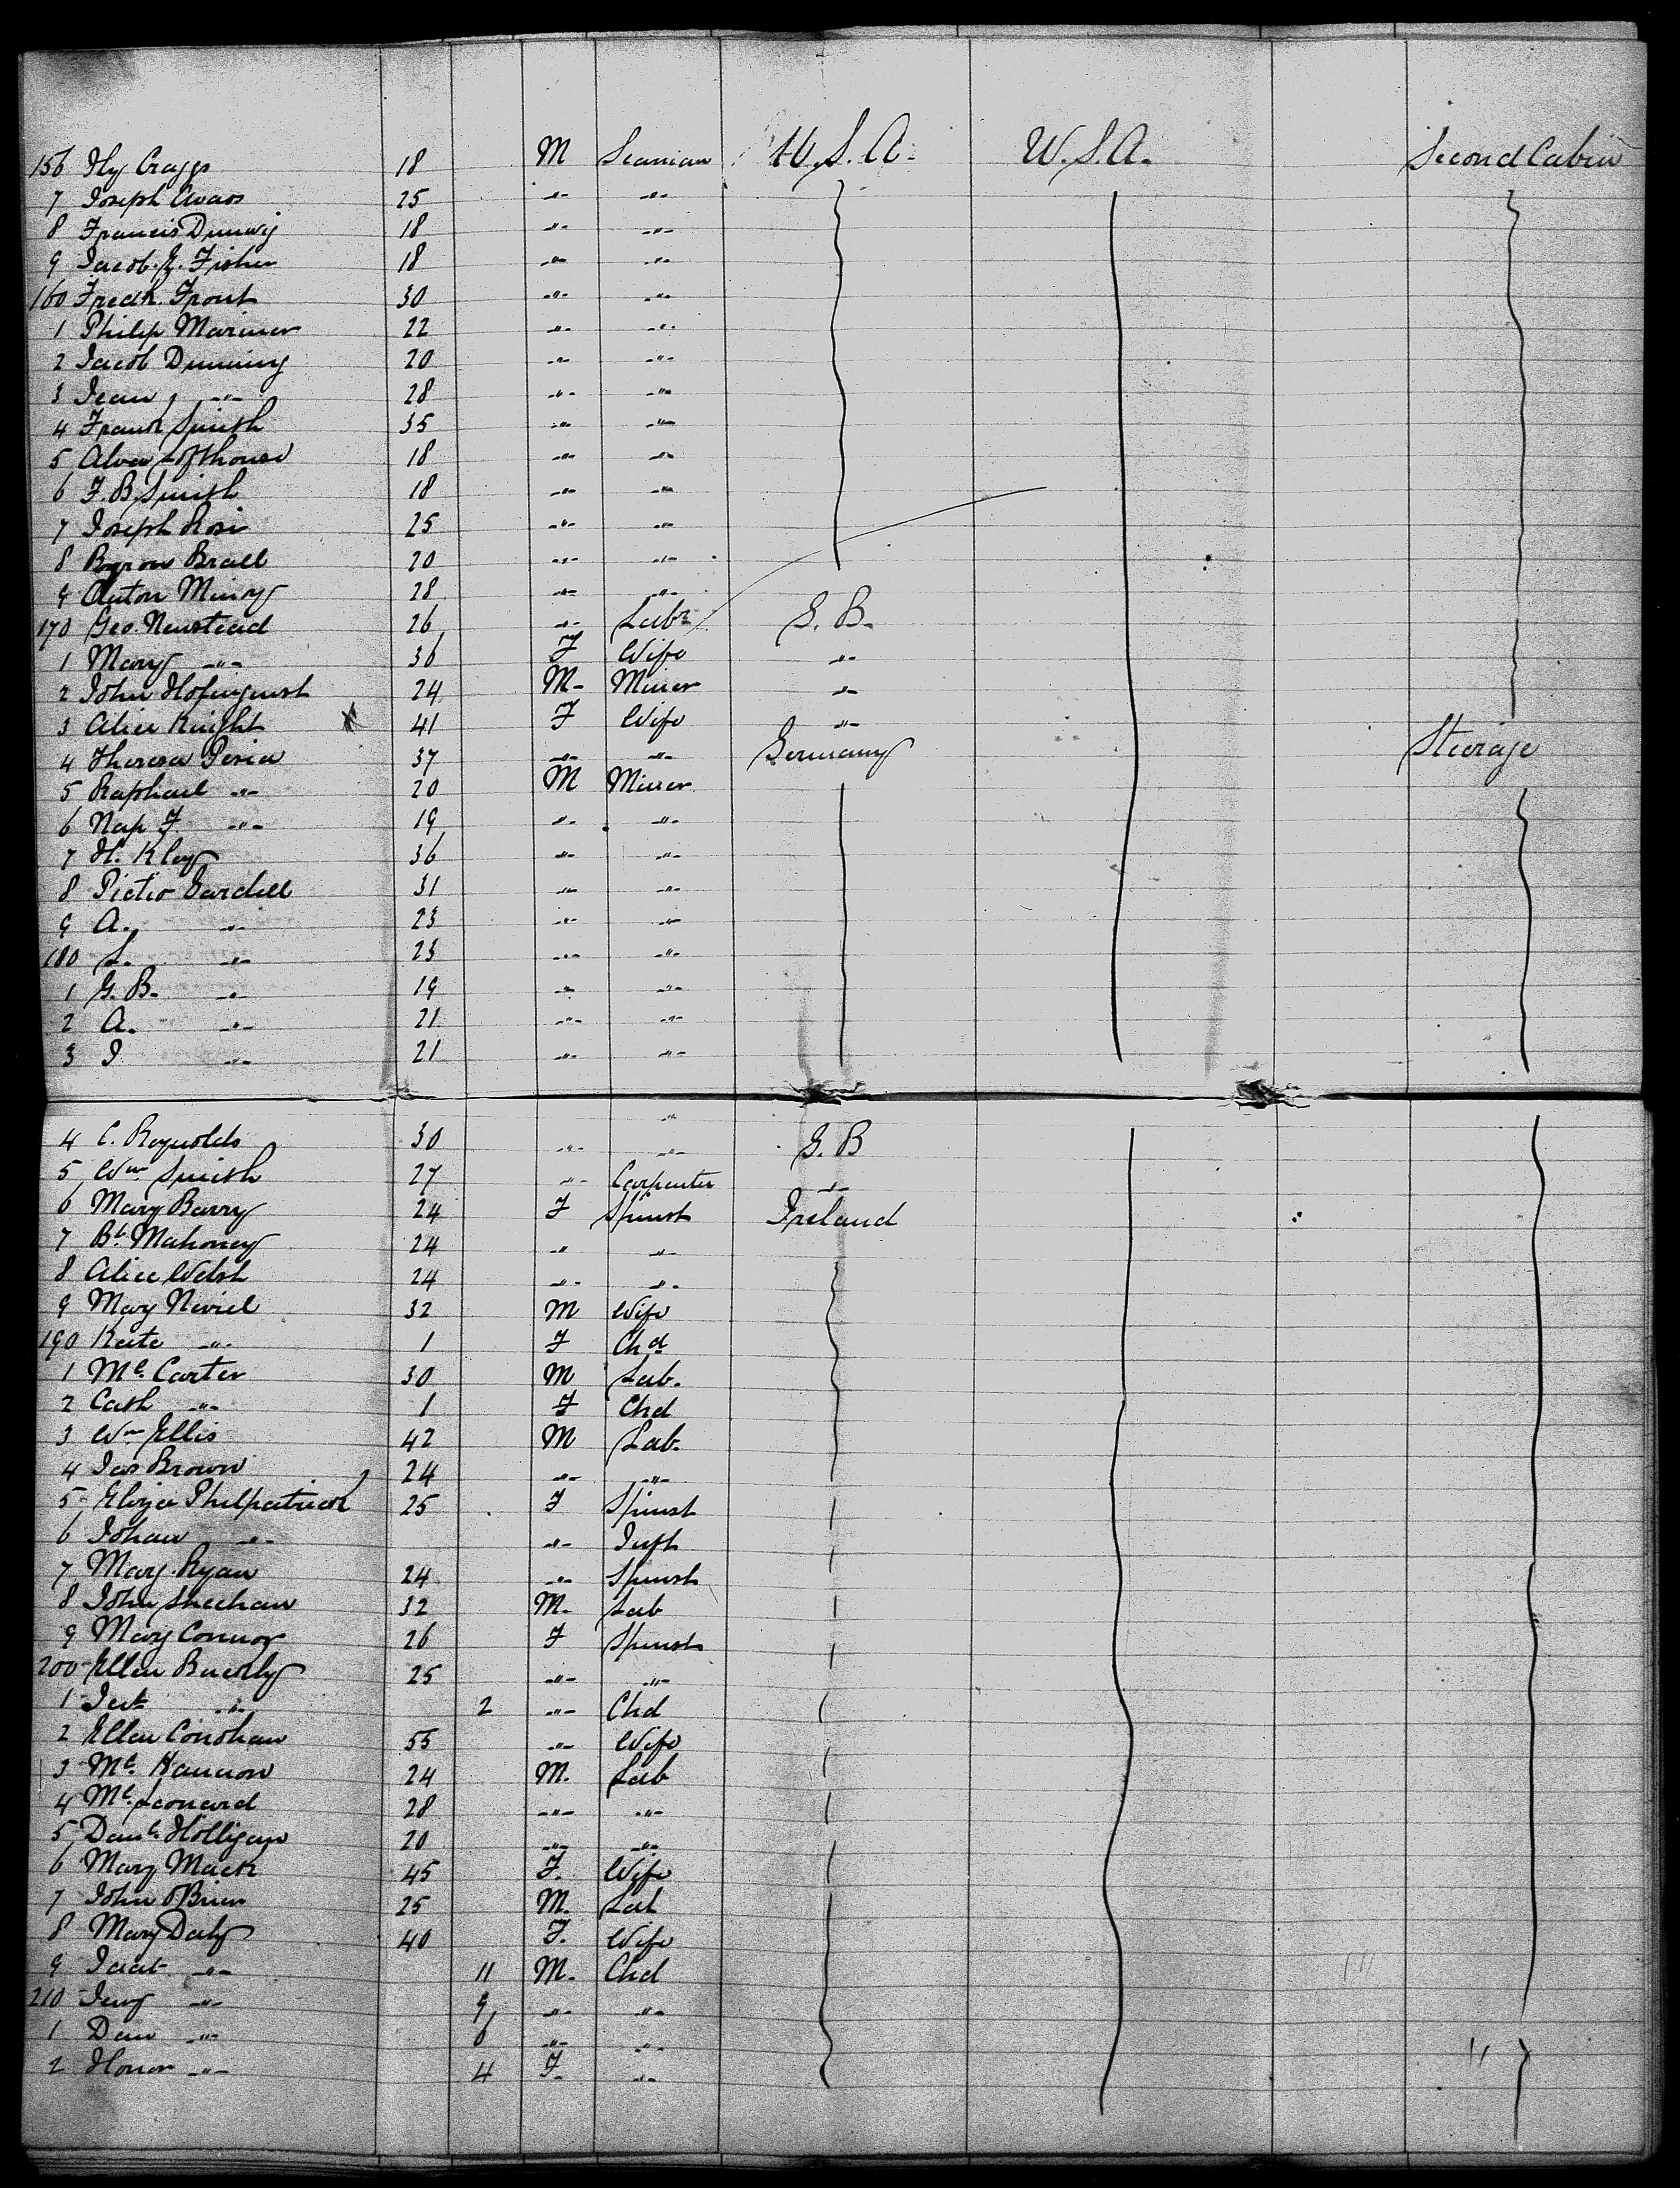 156 Hy Craggs 18 M Seaman U.S.A. U.S.A. Second Cabin
7 Joseph Evans 25 -"- -"-
8 Francis 18 -"- -"-
9 Jacob. Fisher 18 -"- -"-
160 Fredk. Frout 30 -"- -"-
1 Philip Mariner 22 -"- -"-
2 Jacob Dunning 20 -"- -"-
3 Jean -"- 28 -"- -"-
4 Frank Smith 35 -"- -"-
5 Alva Lofthouse 18 -"- -"-
6 F. B. Smith 18 -"- -"-
7 Joseph Rose 25 -"- -"-
8 Byron Brall 20 -"- -"-
9 Anton 28 -"- -"-
170 Geo. Newstead 26 -"- Labr G. B.
1 Mary -"- 36 F Wife -"-
2 John 24 M- Miner -"-
3 Alice Knight 41 F Wife -"-
4 Theresa Peria 37 -"- -"- Germany Steerage
5 Raphael -"- 20 M Miner
6 Nap F -"- 19 -"- -"-
7 H. Kley 36 -"- -"-
8 Pietro Gardell 31 -"- -"-
9 A. -"- 23 -"- -"-
180 L. -"- 23 -"- -"-
1 G. B. -"- 19 -"- -"-
2 A. -"- 21 -"- -"-
3 J -"- 21 -"- -"-
4 C. Reynolds 30 -"- -"- G. B
5 Wm Smith 27 -"- Carpenter -"-
6 Mary Barry 24 F Spinst Ireland
7 Bt. Mahoney 24 -"- -"-
8 Alice Welsh 24 -"- -"-
9 Mary Neviel 32 M Wife
190 Kate -"- 1 F Chd
1 Ml. Carter 30 M Lab.
2 Cath -"- 1 F Chd
3 Wm Ellis 42 M Lab.
4 Jas Brown 24 -"- -"-
5 Eliza Philpatrick 25 F Spinst
6 Johan -"- -"- Inft
7 Mary Ryan 24 -"- Spinst
8 John Sheehan 32 M. Lab
9 Mary Connor 26 F Spinst
200 Ellen 25 -"- -"-
1 -"- 2 -"- Chd
2 Ellen Conohan 55 -"- Wife
3 Ml. Hannon 24 M. Lab
4 Ml. Leonard 28 -"- -"-
5 Danl. Holligan 20 -"- -"-
6 Mary Mack 45 F. Wife
7 John OBrien 25 M. Lab
8 Mary Daly 40 F. Wife
9 -"- 11 M. Chd
210 -"- 9 -"- -"-
1 Dan -"- 6 -"- -"-
2 Honor -"- 4 F. -"-